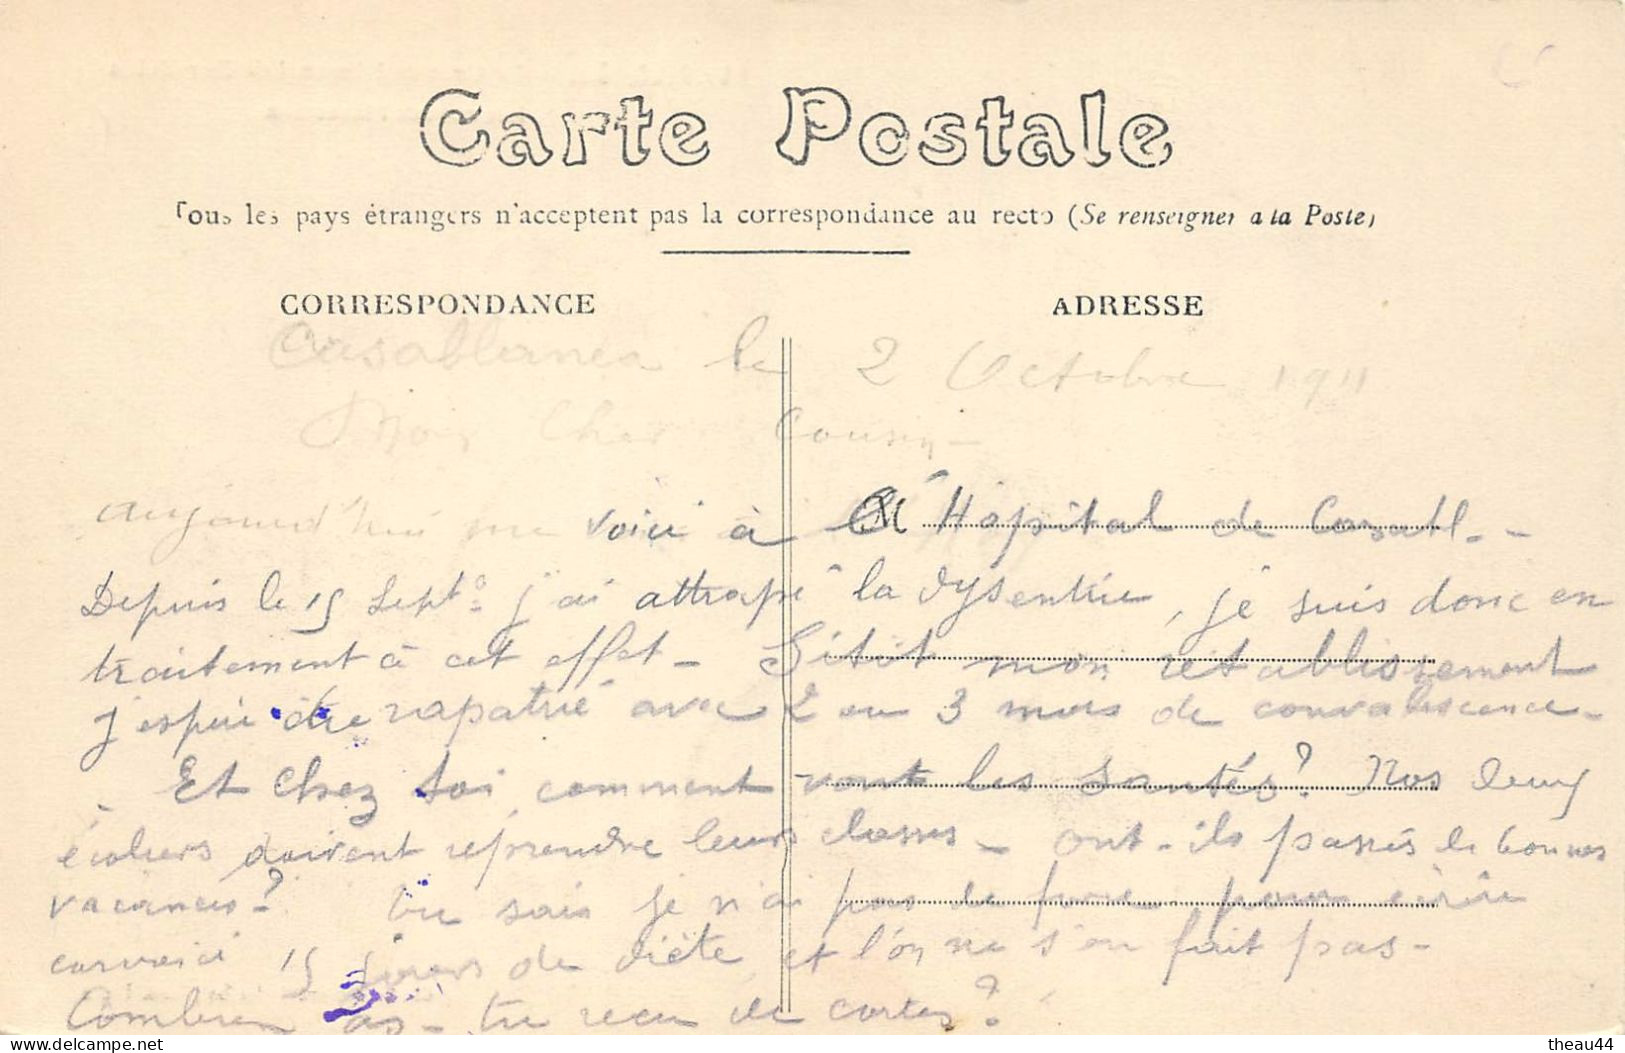 Carte Postale
Tous les pays étrangers n'acceptent pas la correspondance au recto (Se renseigner a la Poste)
CORRESPONDANCE
ADRESSE
Casablanca le 2 Octobre 1911
Mon Cher Cousin -
Aujourd'hui me voici à l'Hôpital de Casabl. -
Depuis le 15 Septe j'ai attrapé la dysentrie, je suis donc en
traitement à cet effet - Sitôt mon rétablissement
j'espère être rapatrié avec 2 ou 3 mois de convalescence -
Et Chez toi comment vont les Santés? Nos deux
écoliers doivent reprendre leurs classes - ont-ils passés de bonnes
vacances? tu sais je n'ai pas de force pour écrire
car voici 15 jours de diète et l'on ne s'en fait pas -
Combien as-tu reçu de cartes?
delcampe.net
theau44